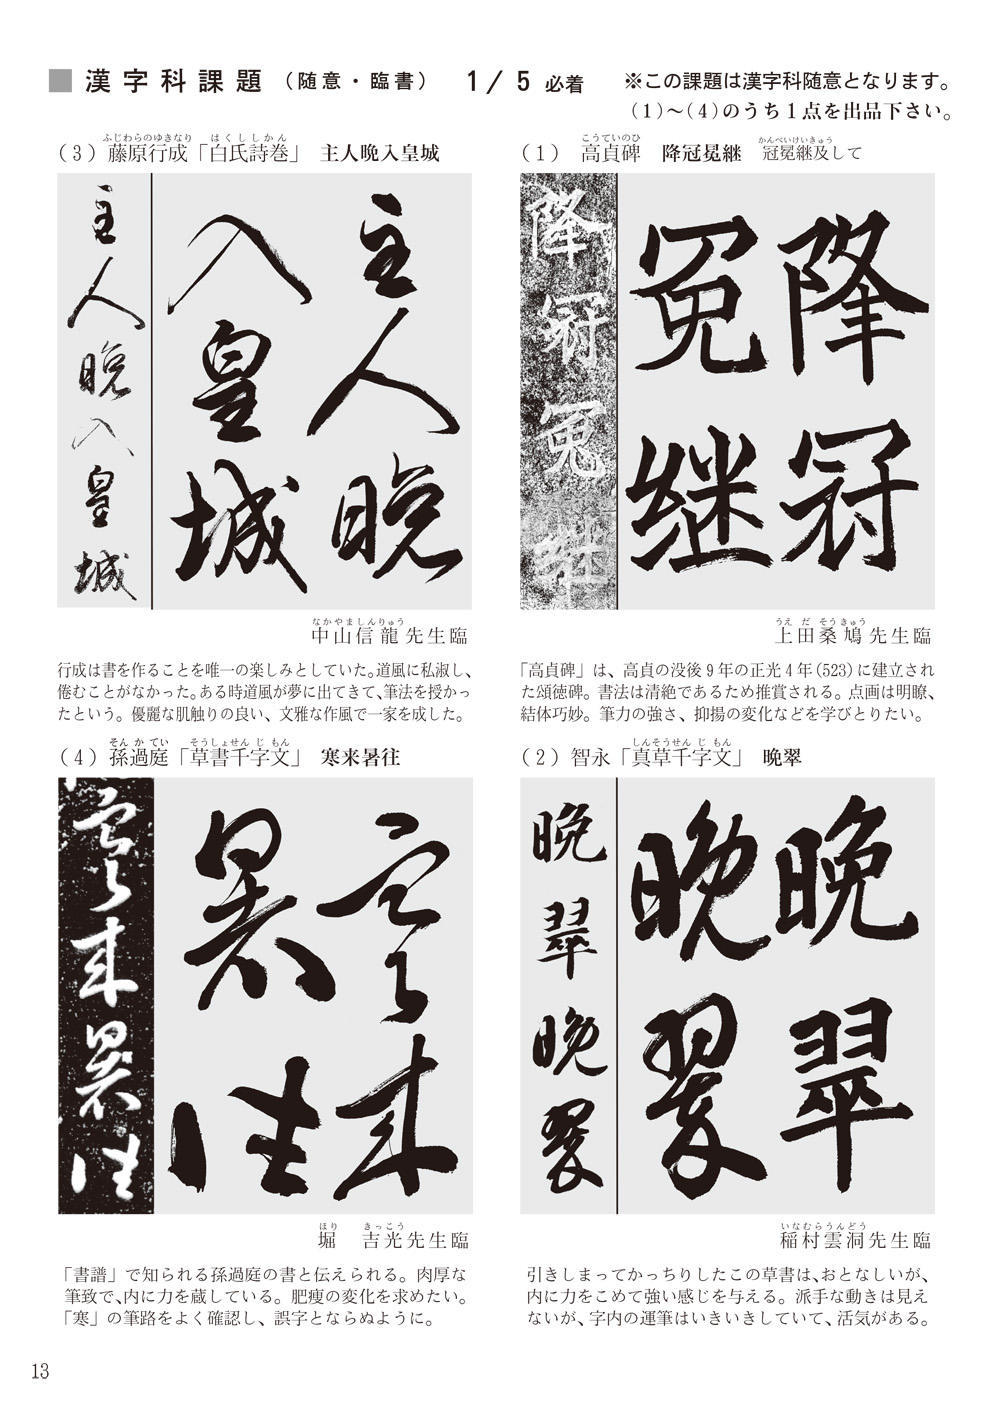 ■ 漢字科課題（随意・臨書） 1/5 必着 ※この課題は漢字科随意となります。
(1)～(4)のうち1点を出品下さい。
こうていのひ かんべいけいきゅう
(1) 高貞碑 降冠冕継 冠冕継及して
降冠
冕継
降冠冕継
うえだそうきゅう
上田桑鳩先生臨
「高貞碑」は、高貞の没後9年の正光4年(523)に建立され
た頌徳碑。書法は清絶であるため推賞される。点画は明瞭、
結体巧妙。筆力の強さ、抑揚の変化などを学びとりたい。
しんそうせんじもん
(2) 智永「真草千字文」 晩翠
晩翠
晩翠
晩翠晩翠
いなむらうんどう
稲村雲洞先生臨
引きしまってかっちりしたこの草書は、おとなしいが、
内に力をこめて強い感じを与える。派手な動きは見え
ないが、字内の運筆はいきいきしていて、活気がある。
ふじわらのゆきなり はくししかん
(3) 藤原行成「白氏詩巻」 主人晩入皇城
主人晩
入皇城
主人晩入皇城
なかやましんりゅう
中山信龍先生臨
行成は書を作ることを唯一の楽しみとしていた。道風に私淑し、
倦むことがなかった。ある時道風が夢に出てきて、筆法を授かっ
たという。優麗な肌触りの良い、文雅な作風で一家を成した。
そんかてい そうしょせんじもん
(4) 孫過庭「草書千字文」 寒来暑往
寒来
暑往
寒来暑往
ほり きっこう
堀 吉光先生臨
「書譜」で知られる孫過庭の書と伝えられる。肉厚な
筆致で、内に力を蔵している。肥痩の変化を求めたい。
「寒」の筆路をよく確認し、誤字とならぬように。
13